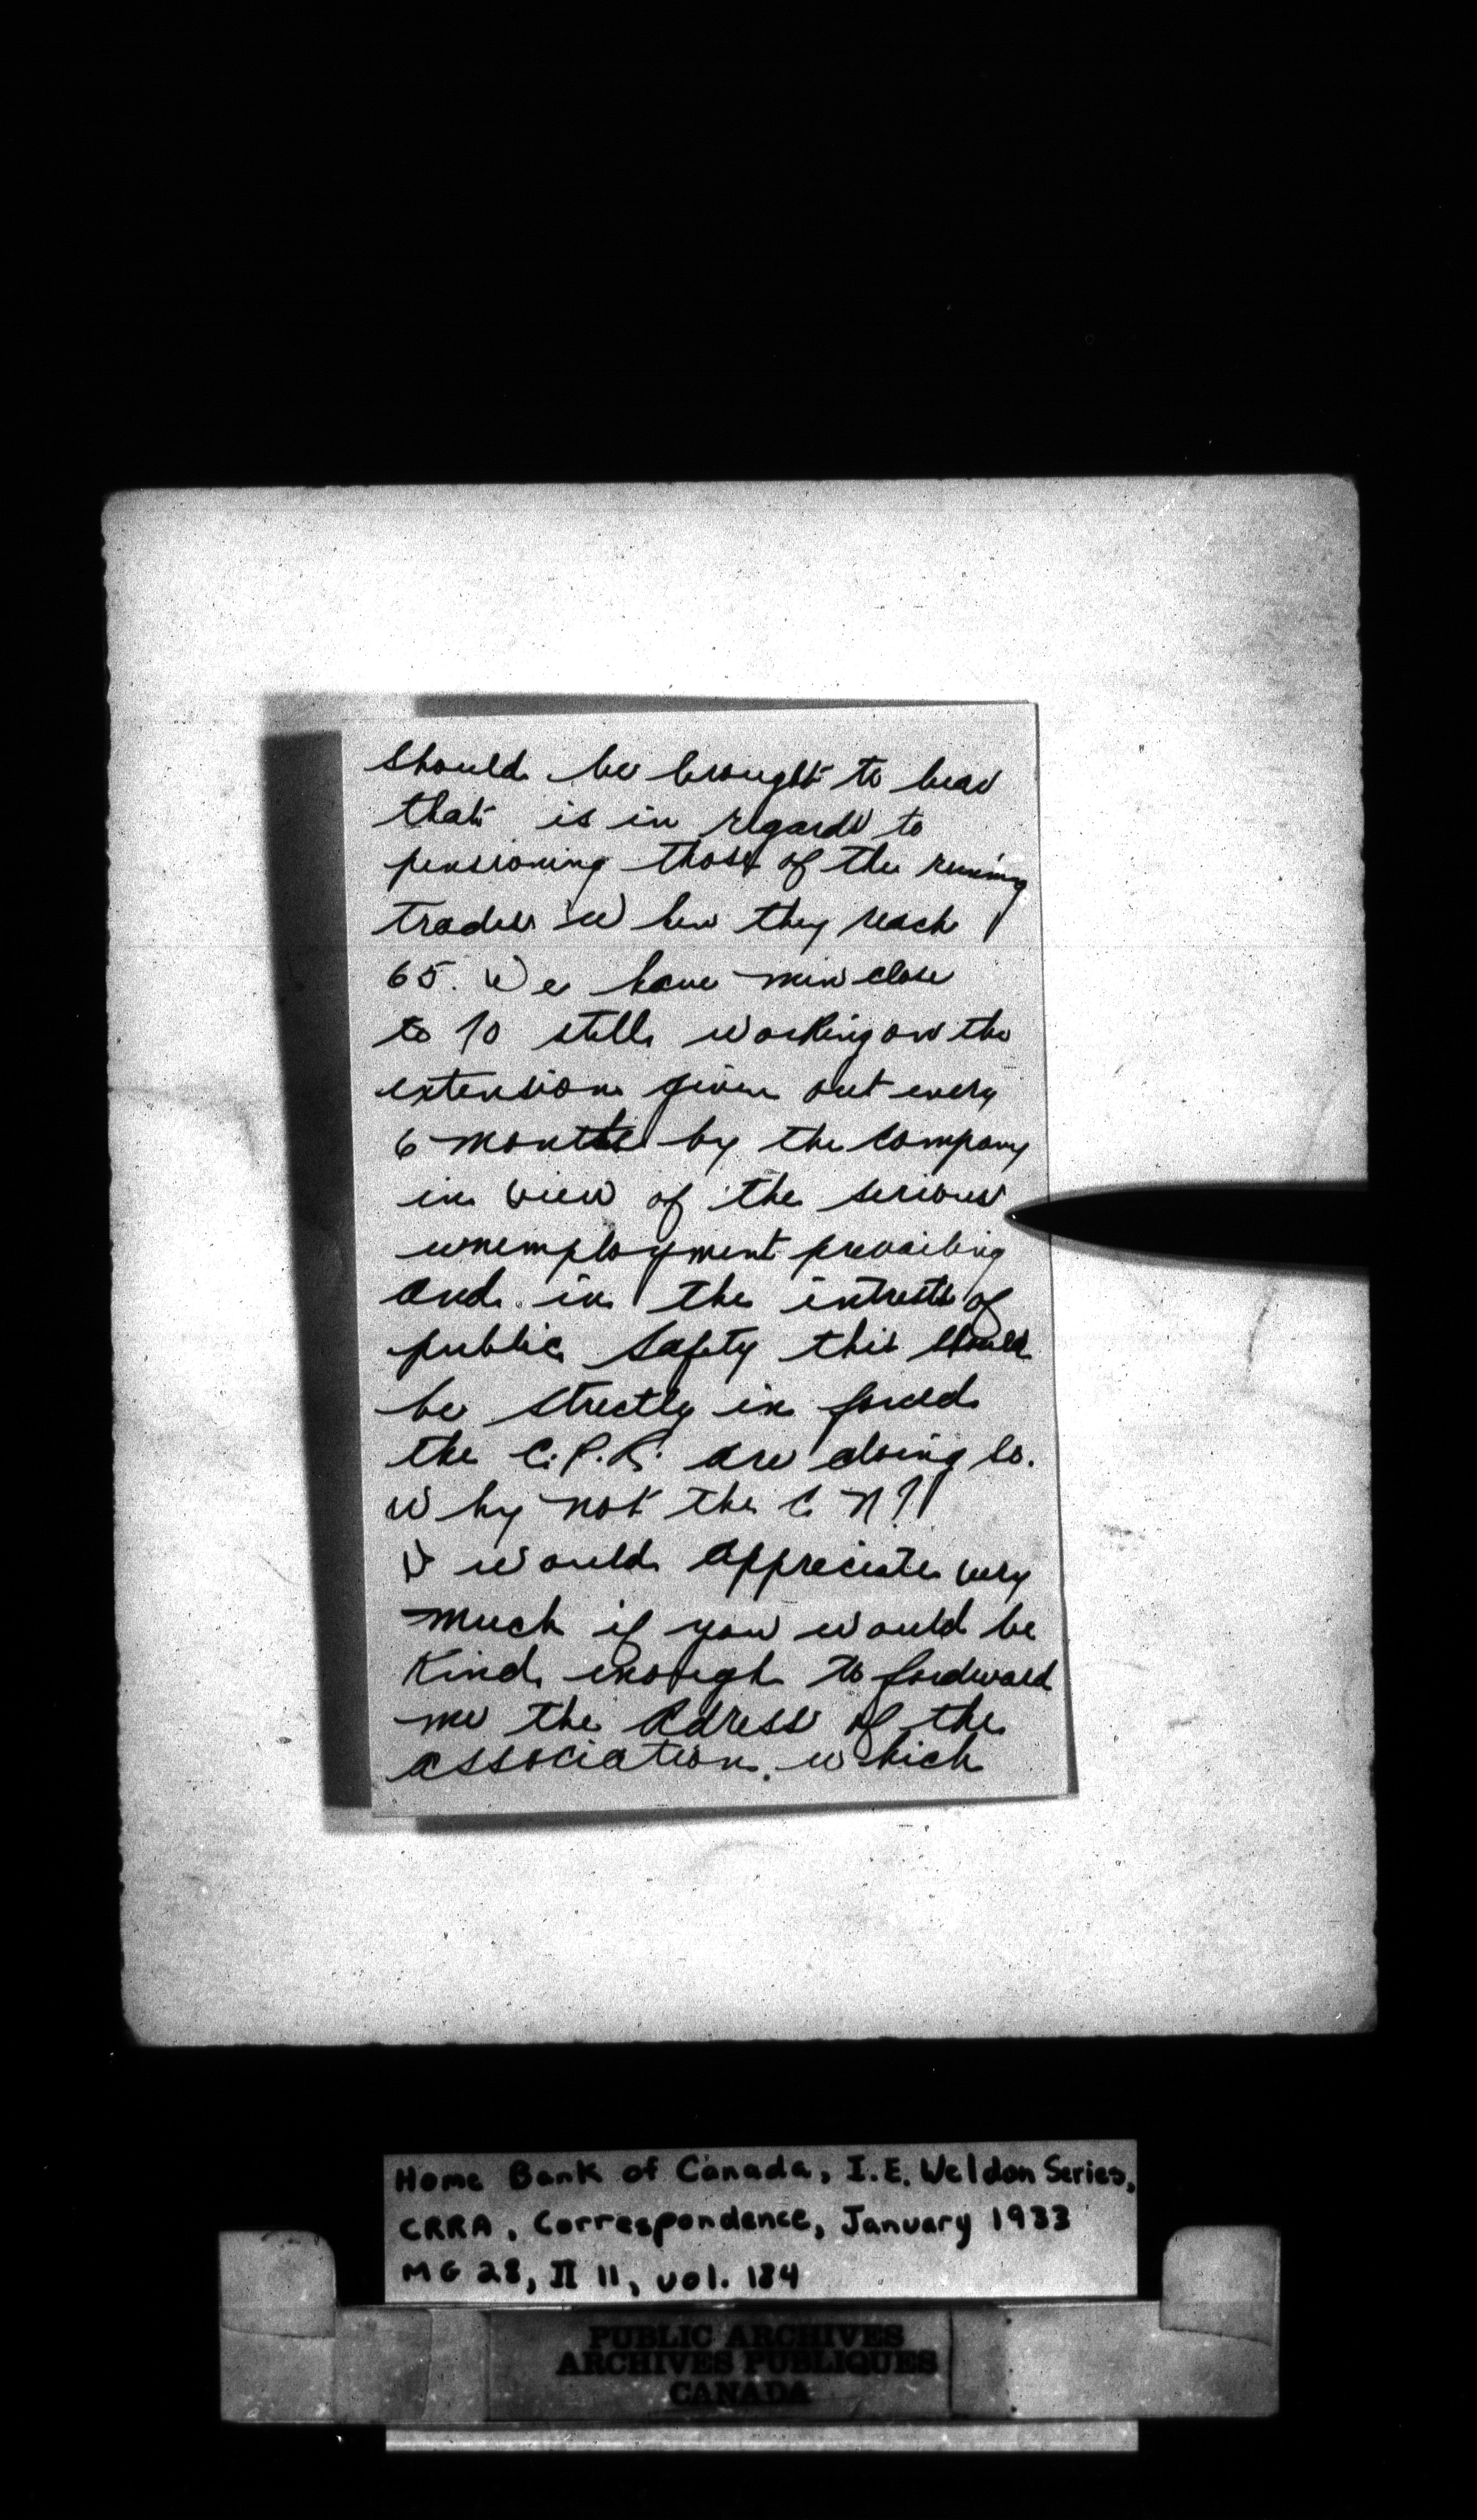 should be brought to bear
that is in regards to
pensioning those of the runing
trades when they reach
65. We have men close
to 70 still working on the
extension given out every
6 months by the company
in view of the serious
unemployment prevailing
and in the intrests of
public safety this should
be strectly in forced
the C.P.R. are doing so.
Why not the C N?
I would appreciate very
much if you would be
kind enough to fordward
me the adress of the
association. which
Home Bank of Canada, I.E. Weldon Series,
CRRA, Correspondence, January 1933
MG 28, II 11, vol. 184
PUBLIC ARCHIVES
ARCHIVES PUBLIQUES
CANADA